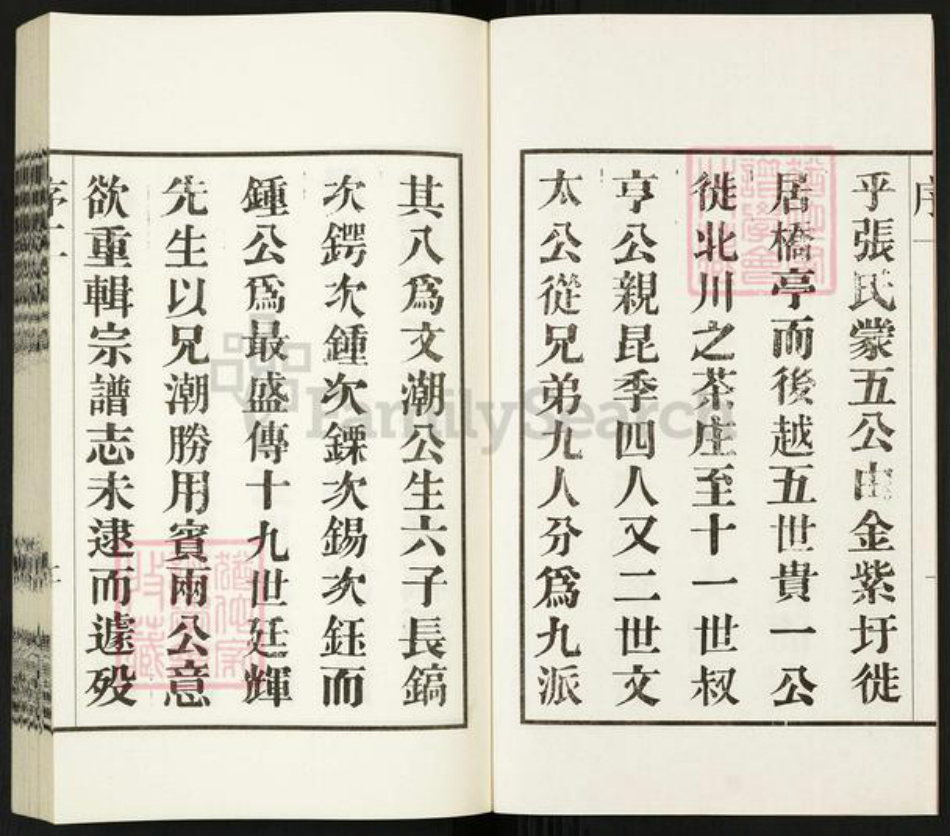 序
乎張氏蒙五公由金紫圩徙
居橋亭而後越五世貴一公
徙北川之茶庄至十一世叔
亨公親昆季四人又二世文
太公從兄弟九人分爲九派
其八爲文潮公生六子長鎬
次鍔次鍾次鏁次錫次鈺而
鍾公爲最盛傳十九世廷輝
先生以兄潮勝用賓兩公意
欲重輯宗譜志未逮而遽歿
序
FamilySearch